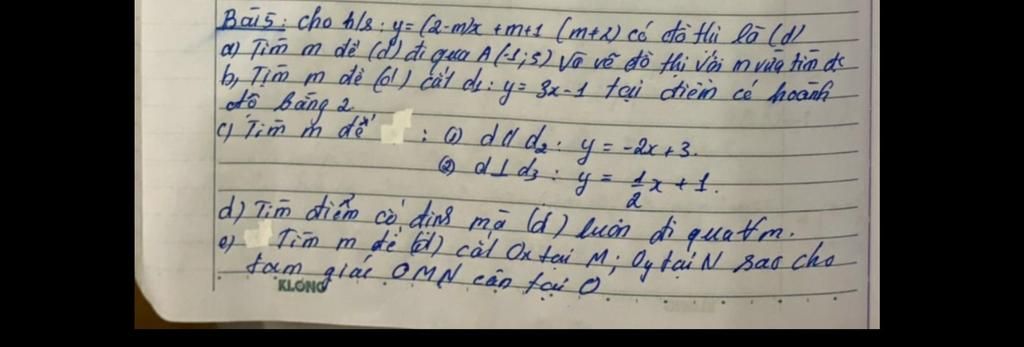 Bài 5: cho h/s: y = (2-m)x + m+1 (m≠2) có đồ thị là (d)
a) Tìm m để (d) đi qua A(-1;5) và vẽ đồ thị với m vừa tìm đc
b, Tìm m để (d) cắt d1: y = 3x-1 tại điểm có hoành
độ bằng 2
c) Tìm m để : (1) d // d2: y = -2x+3.
(2) d ⊥ d3: y = 1/2 x + 1.
d) Tìm điểm cố định mà (d) luôn đi qua ∀m.
e) Tìm m để (d) cắt Ox tại M; Oy tại N sao cho
tam giác OMN cân tại O
KLONG